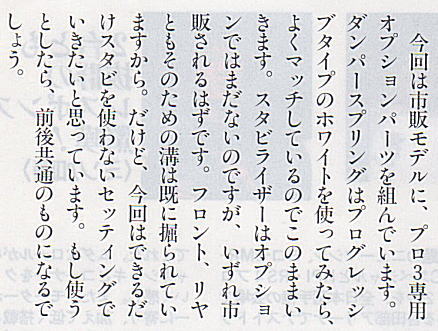 今回は市販モデルに、プロ3専用
オプションパーツを組んでいます。
ダンパースプリングはプログレッシ
ブタイプのホワイトを使ってみたら、
よくマッチしているのでこのままい
きます。スタビライザーはオプショ
ンではまだないのですが、いずれ市
販されるはずです。フロント、リヤ
ともそのための溝は既に掘られてい
ますから。だけど、今回はできるだ
けスタビを使わないセッティングで
いきたいと思っています。もし使う
としたら、前後共通のものになるで
しょう。